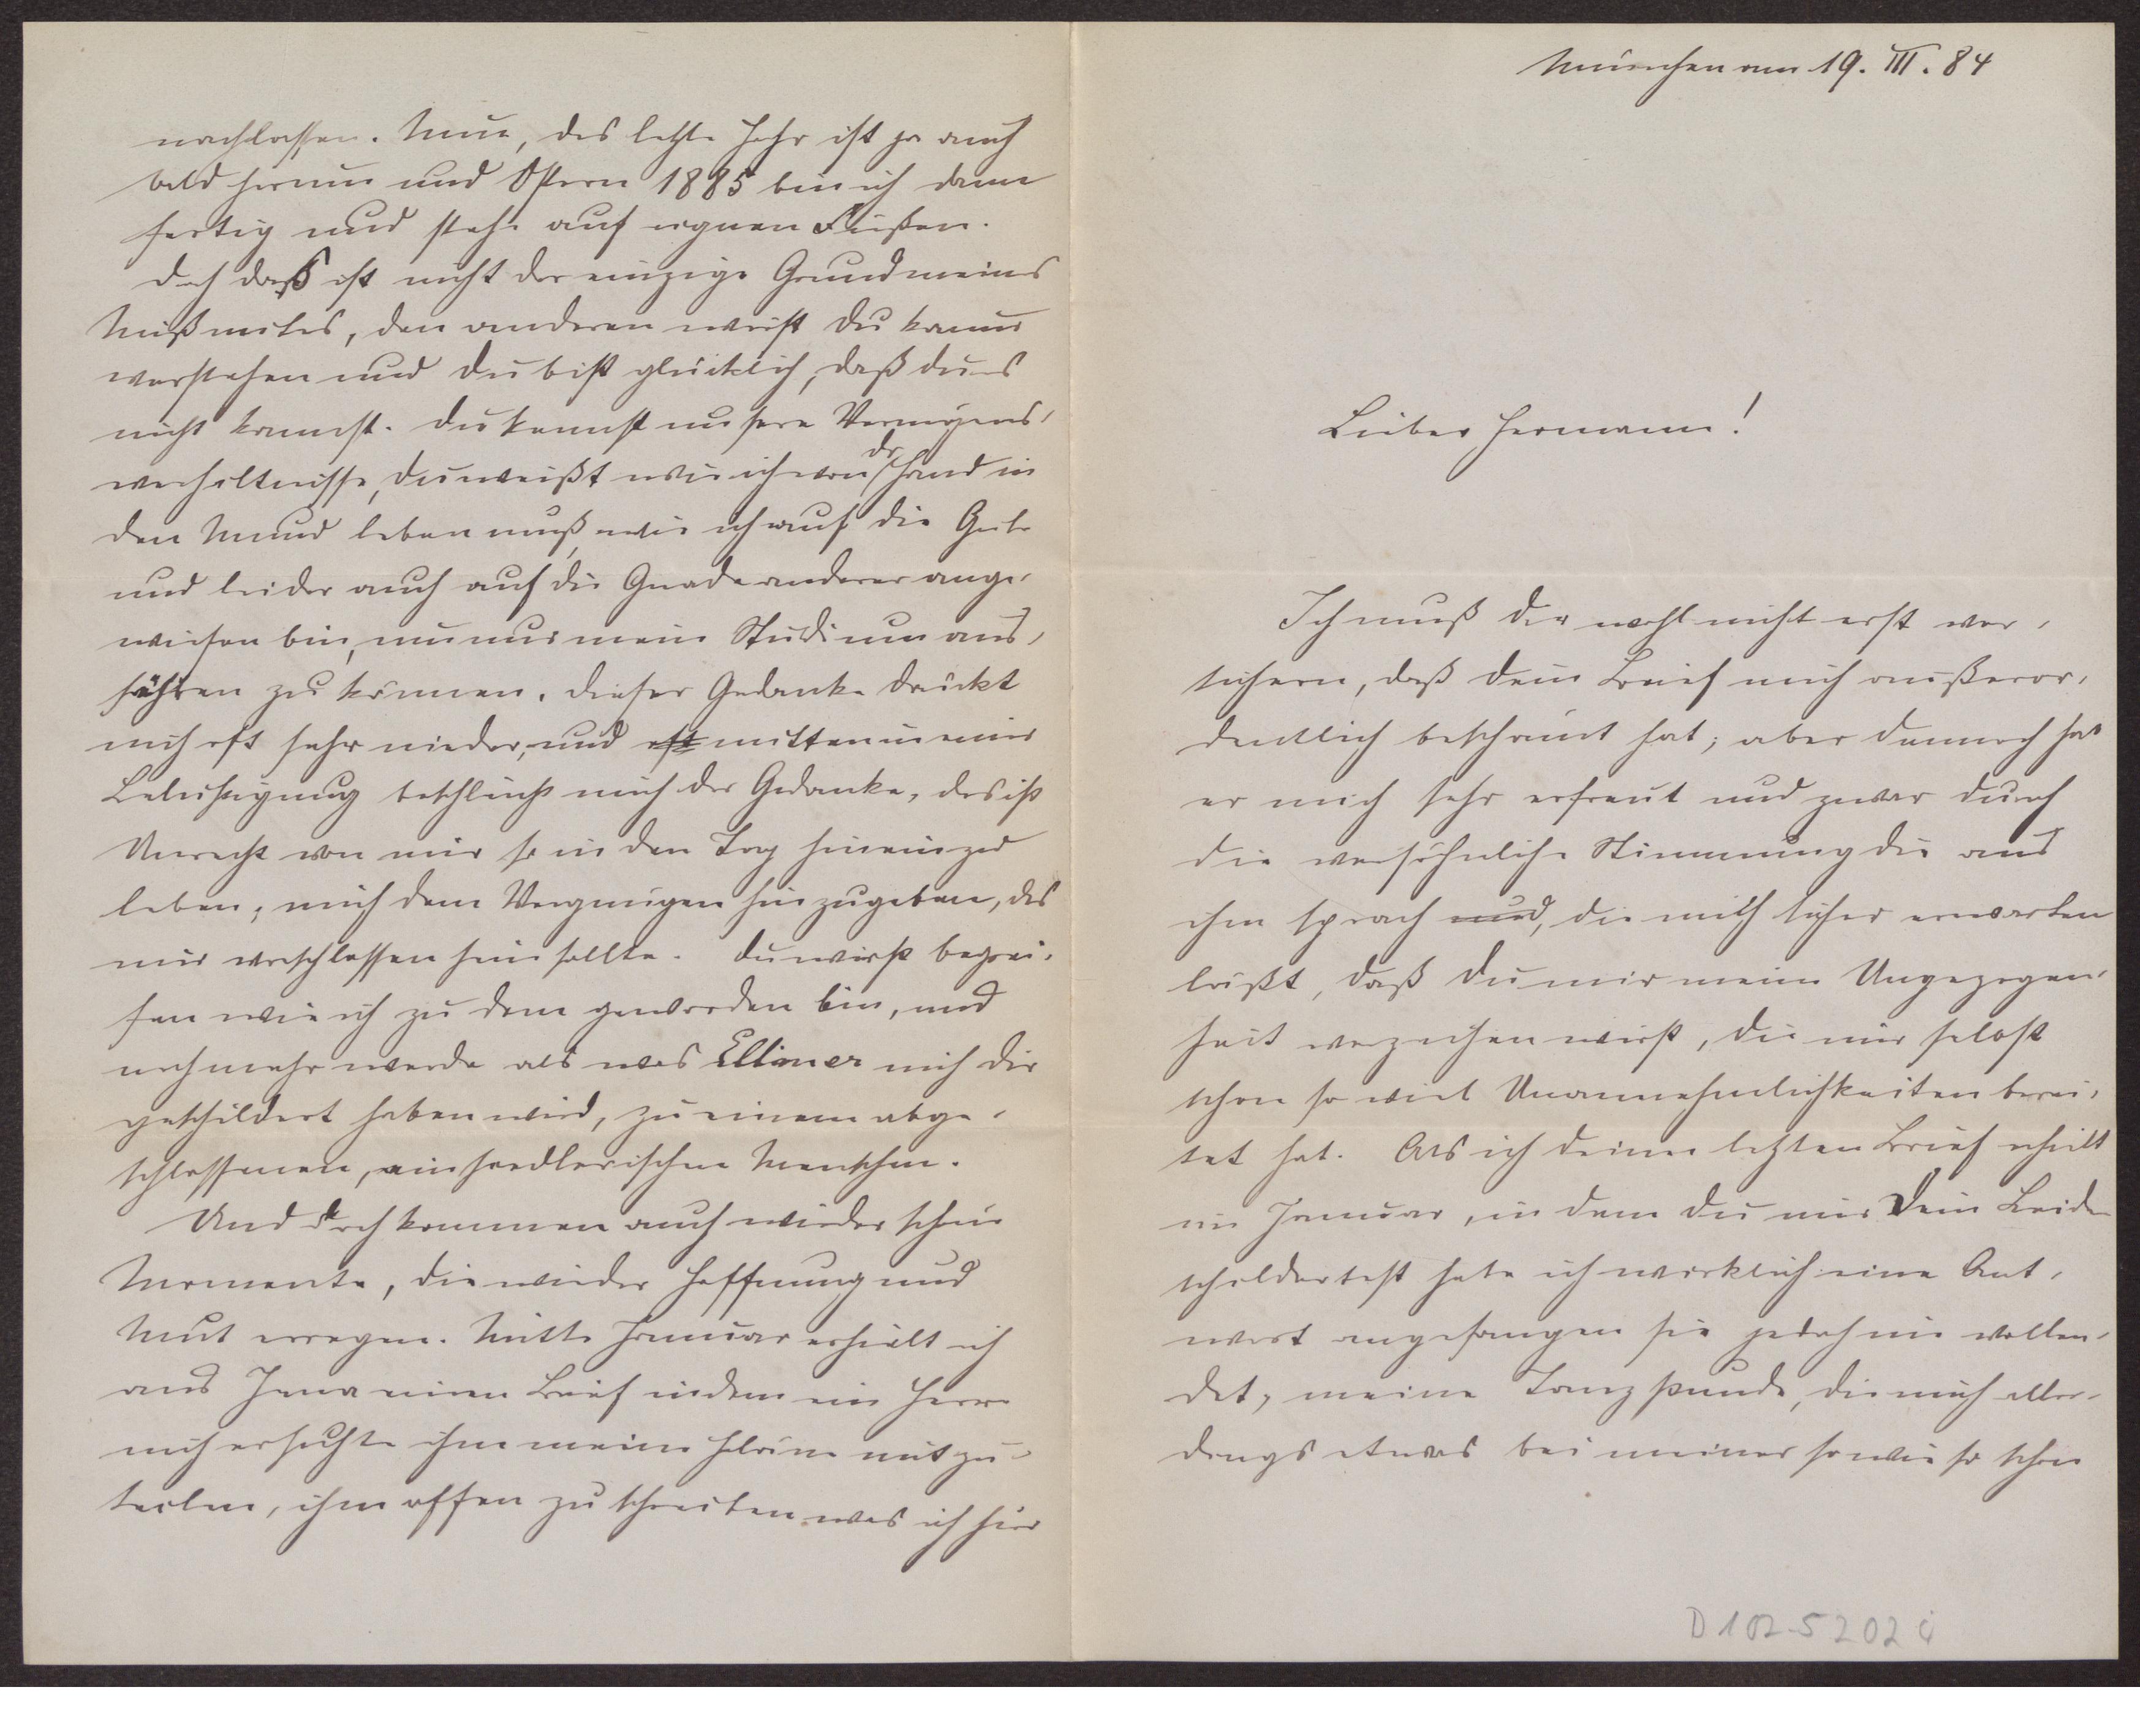 nachlassen. Nun, das letzte Jahr ist ja auch
bald herum und Ostern 1885 bin ich dann
fertig und stehe auf eignen Füßen.
Doch daß ist nicht der einzige Grund meines
Mißmutes, den anderen wirst Du kaum
verstehen und Du bist glücklich, daß du es
nicht kannst. Du kennst unsere Vermögens-
verhältnisse, Du weißt wie ich von der Hand in
den Mund leben muß, wie ich auf die Güte
und leider auch auf die Gnade anderer ange-
wiesen bin, um nur mein Studium aus-
führen zu können. Dieser Gedanke drückt
mich oft sehr nieder, und oft mitten in einer
Belustigung beschleicht mich der Gedanke, das ist
Unrecht von mir so in den Tag hineinzu
leben, mich dem Vergnügen hinzugeben, das
mir verschlossen sein sollte. Du wirst begrei-
fen wie ich zu dem geworden bin, und
noch mehr werde als was Ellmer mich dir
geschildert haben wird, zu einem abge-
schlossenen, einsiedlerischen Menschen.
Und doch kommen auch wieder schöne
Momente, die wieder Hoffnung und
Mut erregen. Mitte Januar erhielt ich
aus Jena einen Brief indem ein Herr
mich ersuchte ihm meine Pläne mitzu-
teilen, ihm offen zu schreiben was ich hier
München am 19. III. 84
Lieber Hermann!
Ich muß Dir wohl nicht erst ver-
sichern, daß Dein Brief mich außeror-
dentlich beschämt hat; aber dennoch hat
er mich sehr erfreut und zwar durch
die versöhnliche Stimmung die aus
ihm sprach und, die mich sicher erwarten
läßt, daß Du mir meine Ungezogen-
heit verzeihen wirst, die mir selbst
schon so viel Unannehmlichkeiten berei-
tet hat. Als ich deinen letzten Brief erhielt
im Januar, in dem Du mir Dein Leiden
schildertest habe ich wirklich eine Ant-
wort angefangen sie jedoch nie vollen-
det, meine Tanzstunde, die mich aller-
dings etwas bei meiner sowieso schon
D 102-5202 ü